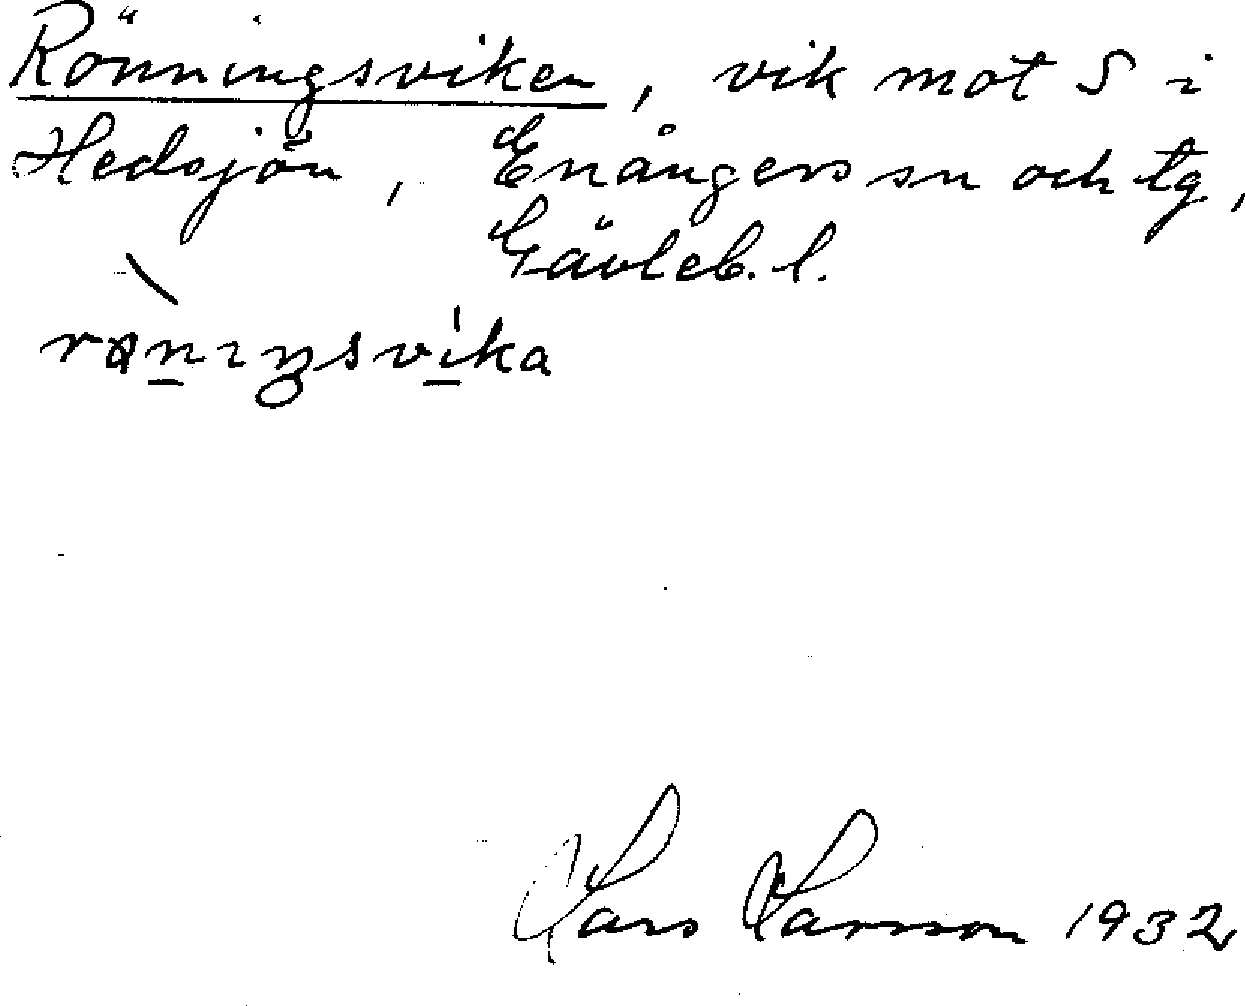 Rönningsviken, vik mot S i
Hedsjön, Enångers sn och tg,
Gävleb. l.
Lars Larsson 1932